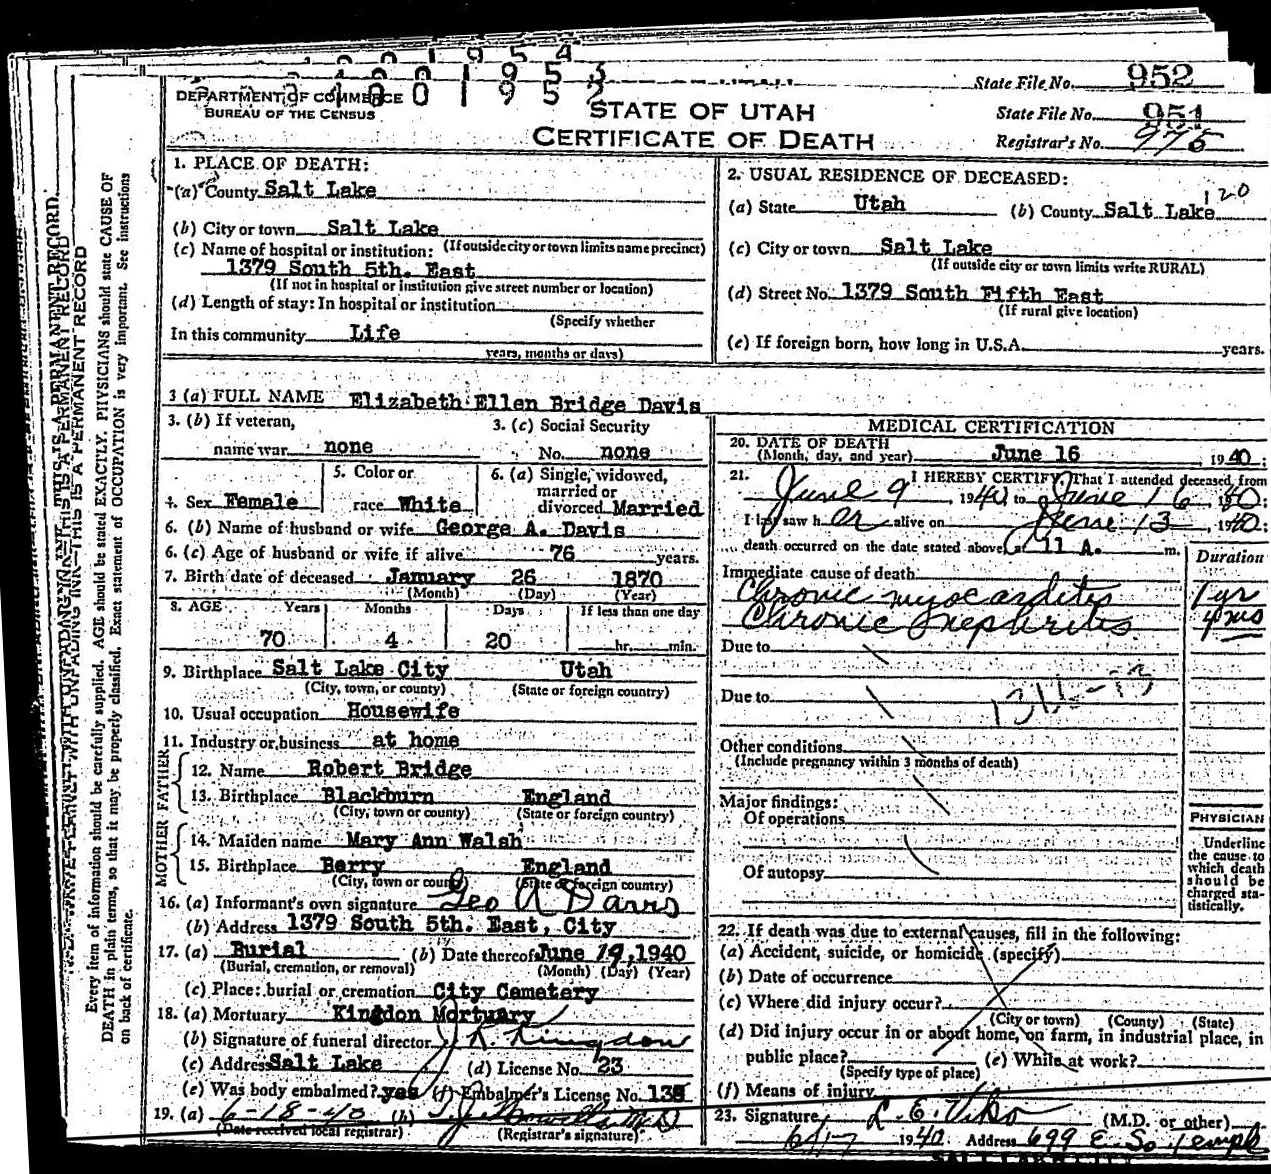 State File No. 952
DEPARTMENT OF COMMERCE
BUREAU OF THE CENSUS
STATE OF UTAH
CERTIFICATE OF DEATH
State File No. 951
Registrar's No. 975
1. PLACE OF DEATH:
(a) County Salt Lake
(b) City or town Salt Lake
(If outside city or town limits name precinct)
(c) Name of hospital or institution:
1379 South 5th. East
(If not in hospital or institution give street number or location)
(d) Length of stay: In hospital or institution
(Specify whether
In this community Life
years, months or days)
2. USUAL RESIDENCE OF DECEASED:
120
(a) State Utah (b) County Salt Lake
(c) City or town Salt Lake
(If outside city or town limits write RURAL)
(d) Street No. 1379 South Fifth East
(If rural give location)
(e) If foreign born, how long in U.S.A. years.
3 (a) FULL NAME Elizabeth Ellen Bridge Davis
3. (b) If veteran, name war none
3. (c) Social Security No. none
4. Sex Female
5. Color or race White
6. (a) Single, widowed, married or divorced Married
6. (b) Name of husband or wife George A. Davis
6. (c) Age of husband or wife if alive 76 years.
7. Birth date of deceased January 26 1870
(Month) (Day) (Year)
8. AGE Years Months Days If less than one day
70 4 20 hr. min.
9. Birthplace Salt Lake City Utah
(City, town, or county) (State or foreign country)
10. Usual occupation Housewife
11. Industry or business at home
FATHER
12. Name Robert Bridge
13. Birthplace Blackburn England
(City, town or county) (State or foreign country)
MOTHER
14. Maiden name Mary Ann Walsh
15. Birthplace Berry England
(City, town or county) (State or foreign country)
16. (a) Informant's own signature Geo A Davis
(b) Address 1379 South 5th. East, City
17. (a) Burial (b) Date thereof June 19, 1940
(Burial, cremation, or removal) (Month) (Day) (Year)
(c) Place: burial or cremation City Cemetery
18. (a) Mortuary Kingdon Mortuary
(b) Signature of funeral director J. K. Kingdon
(c) Address Salt Lake (d) License No. 23
(e) Was body embalmed? yes (f) Embalmer's License No. 138
19. (a) 6-18-40 (b) M D
(Date received local registrar) (Registrar's signature)
MEDICAL CERTIFICATION
20. DATE OF DEATH
(Month, day, and year) June 16, 1940;
21. I HEREBY CERTIFY, That I attended deceased from
June 9, 1940 to June 16 1940:
I last saw h er alive on June 13 1940:
death occurred on the date stated above, at 11 A. m.
Duration
Immediate cause of death
Chronic myocarditis 1 yr
Chronic nephritis 4 mos
Due to
Due to
Other conditions
(Include pregnancy within 3 months of death)
Major findings:
Of operations
Of autopsy
PHYSICIAN
Underline
the cause to
which death
should be
charged sta-
tistically.
22. If death was due to external causes, fill in the following:
(a) Accident, suicide, or homicide (specify)
(b) Date of occurrence
(c) Where did injury occur?
(City or town) (County) (State)
(d) Did injury occur in or about home, on farm, in industrial place, in
public place? (e) While at work?
(Specify type of place)
(f) Means of injury
23. Signature L. E. Viko (M.D. or other)
6/17 1940 Address 699 E. So. Temple
SALT LAKE CITY
THIS IS A PERMANENT RECORD
Every item of information should be carefully supplied. AGE should be stated EXACTLY. PHYSICIANS should state CAUSE OF
DEATH in plain terms, so that it may be properly classified. Exact statement of OCCUPATION is very important. See instructions
on back of certificate.